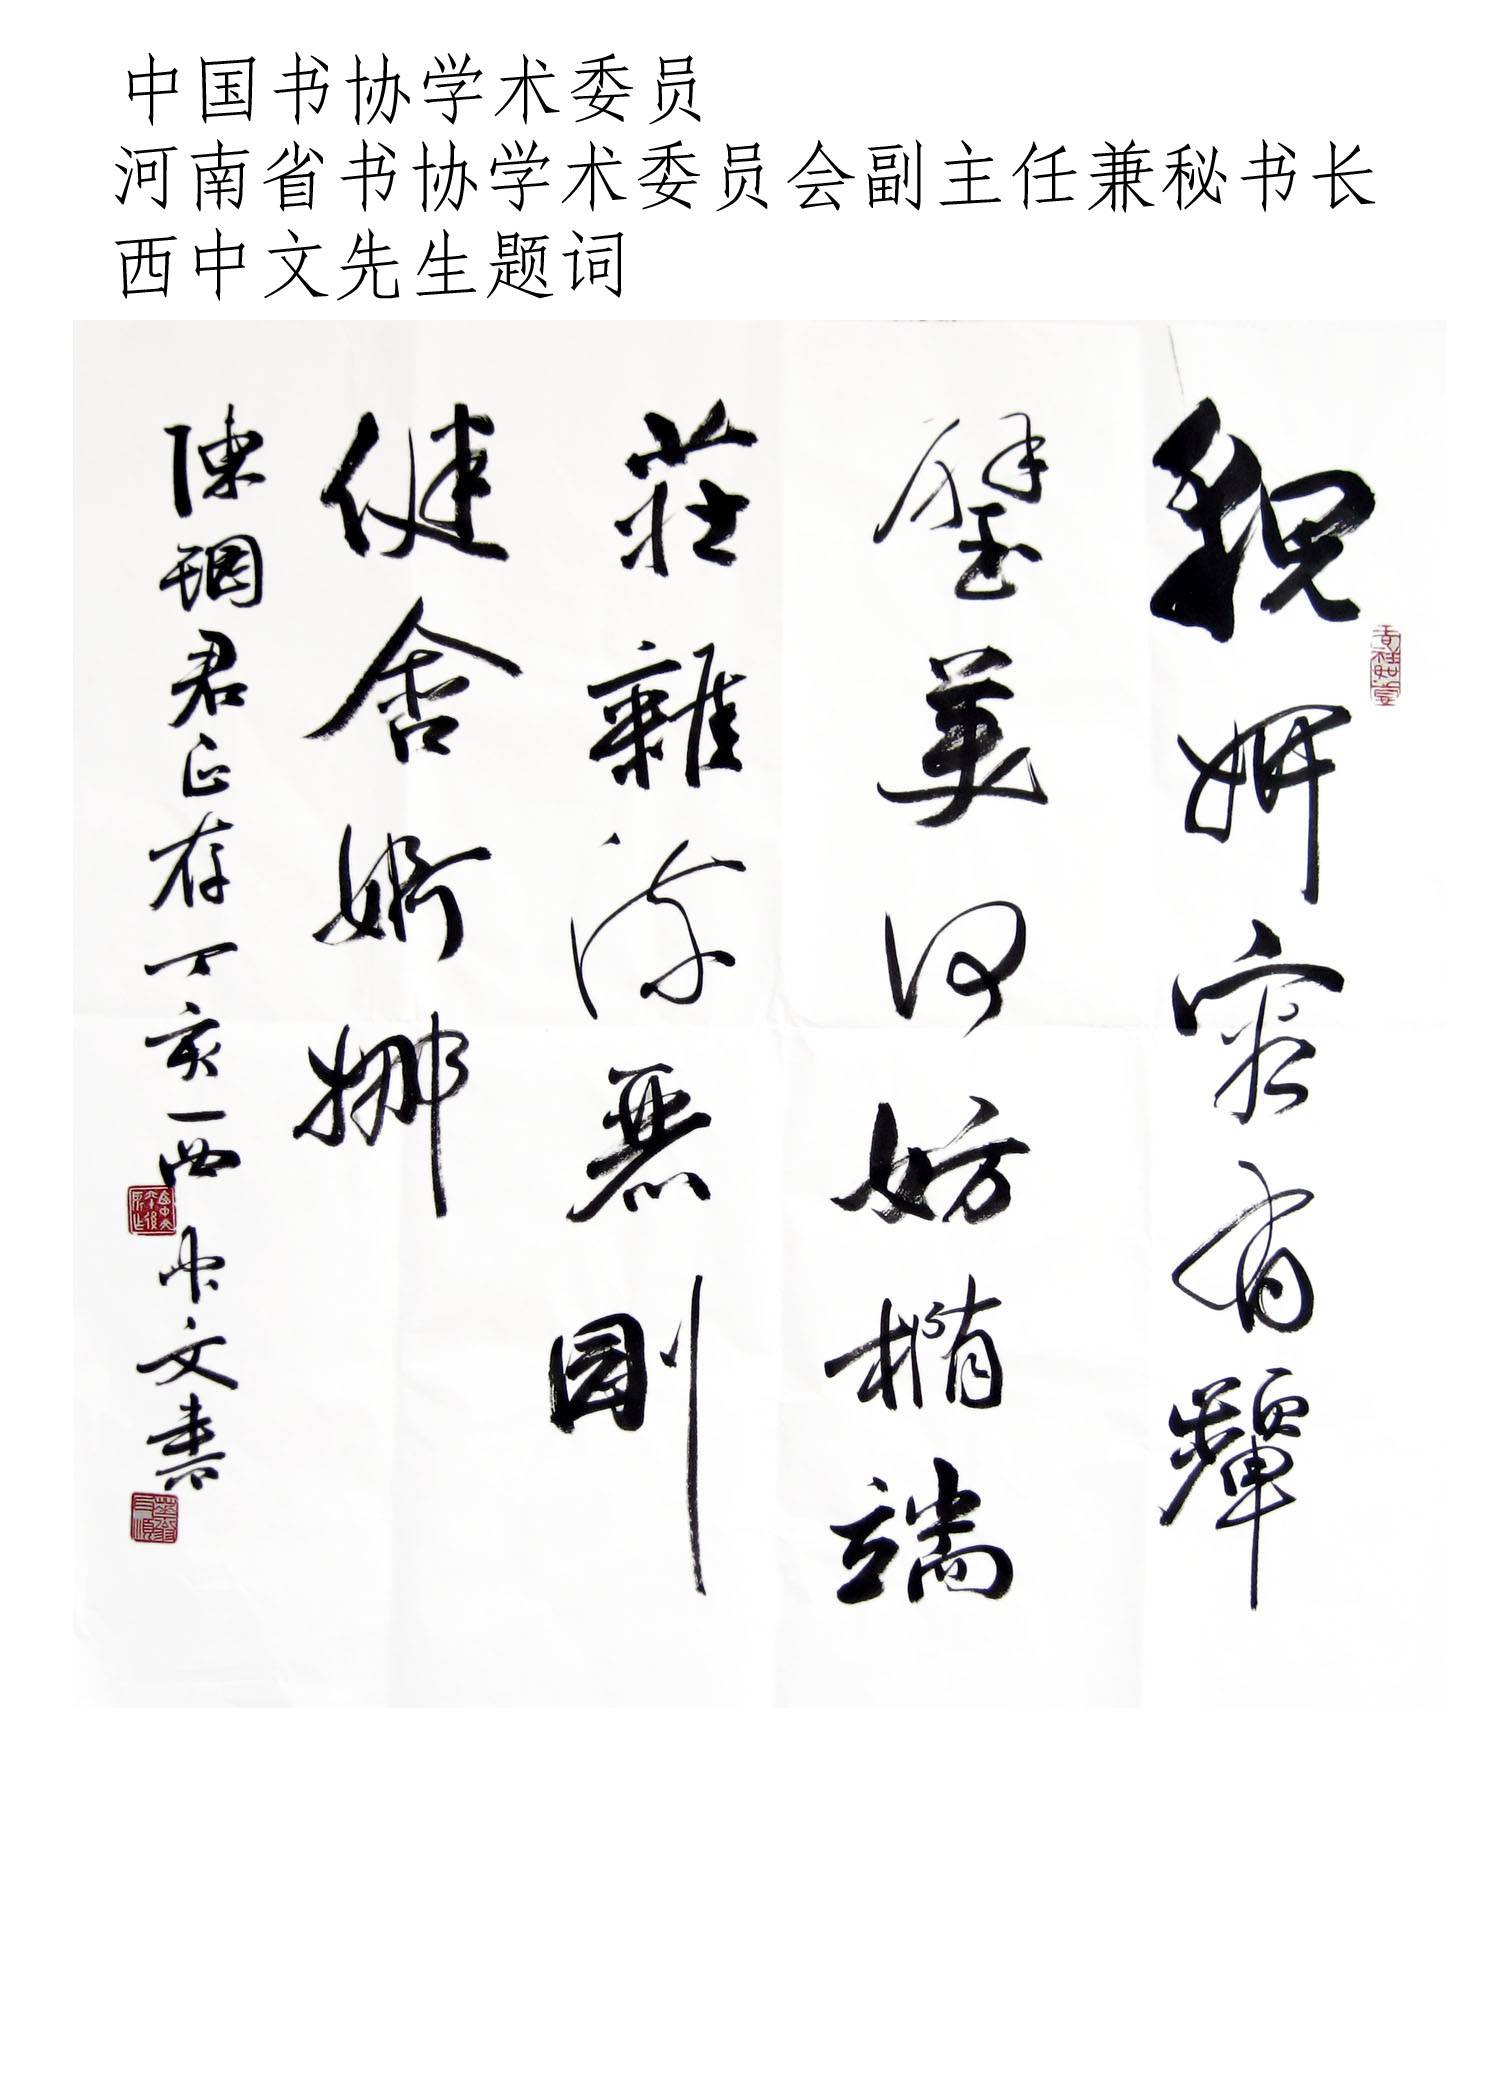 中国书协学术委员
河南省书协学术委员会副主任兼秘书长
西中文先生题词
貌妍容有颦
璧美何妨椭端
莊雜流麗剛
健含婀娜
陳珚君正存丁亥一西中文書